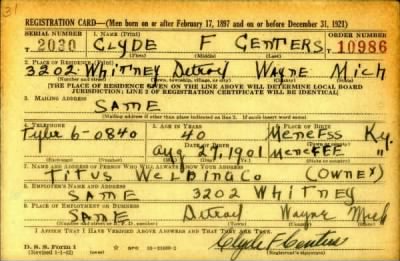 31
REGISTRATION CARD—(Men born on or after February 17, 1897 and on or before December 31, 1921)
SERIAL NUMBER 1. NAME (Print) ORDER NUMBER
T 2030 CLYDE F GENTERS T 10986
(First) (Middle) (Last)
2. PLACE OF RESIDENCE (Print)
3202 WHITNEY Detroy WAYNE Mich
(Number and street) (Town, township, village, or city) (County) (State)
[THE PLACE OF RESIDENCE GIVEN ON THE LINE ABOVE WILL DETERMINE LOCAL BOARD
JURISDICTION; LINE 2 OF REGISTRATION CERTIFICATE WILL BE IDENTICAL]
3. MAILING ADDRESS
SAME
[Mailing address if other than place indicated on line 2. If same insert word same]
4. TELEPHONE 5. AGE IN YEARS 6. PLACE OF BIRTH
Tyler 6-0840 40 Ky.
DATE OF BIRTH
Aug 27 1901 MENEFEE "
(Mo.) (Day) (Yr.)
7. NAME AND ADDRESS OF PERSON WHO WILL ALWAYS KNOW YOUR ADDRESS
TITUS WELDING CO (OWNER)
8. EMPLOYER'S NAME AND ADDRESS
SAME 3202 WHITNEY
9. PLACE OF EMPLOYMENT OR BUSINESS
SAME Detroy Wayne Mich
(Number and street or R. F. D. number) (Town) (County) (State)
I AFFIRM THAT I HAVE VERIFIED ABOVE ANSWERS AND THAT THEY ARE TRUE.
D. S. S. Form 1
(Revised 1-1-42) GPO Clyde F Genters
(Registrant's signature)